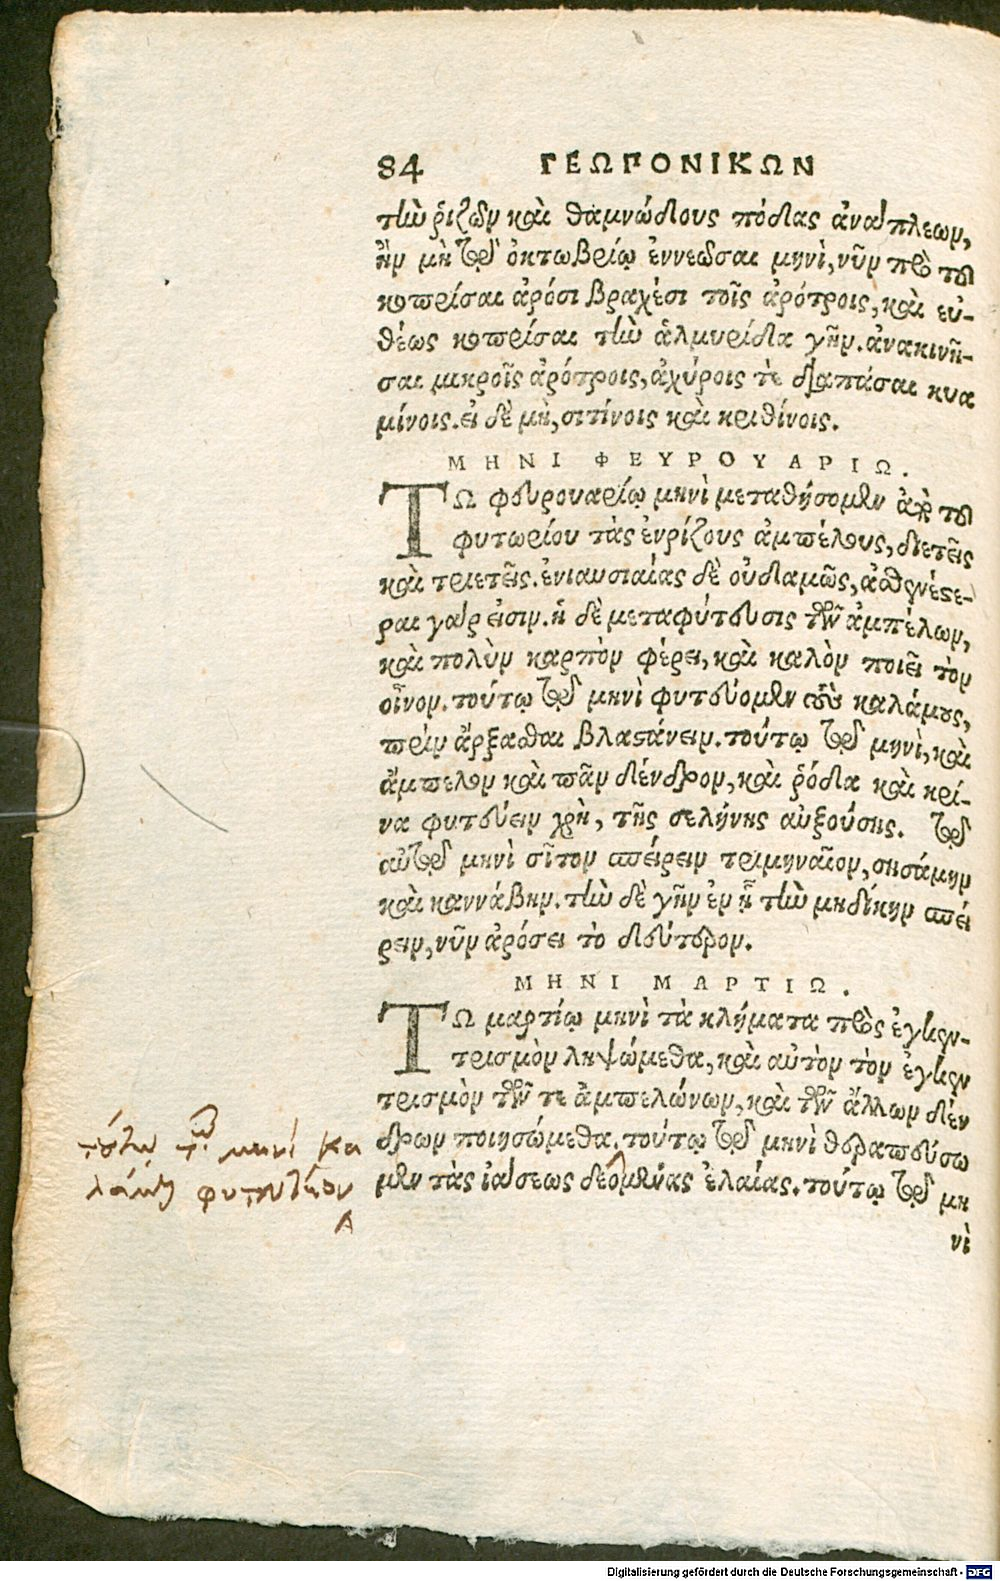 84 ΓΕΩΠΟΝΙΚΩΝ
τὴν ῥιζῶν καὶ θαμνώδους πόδας ἀνάπλεων,
ἣν μὴ τῷ ὀκτωβρίῳ ἐννεῶσαι μηνὶ, νῦν πρὸ τοῦ
κοπρίσαι ἀρόσι βραχέσι τοῖς ἀρότροις, καὶ εὐ-
θέως κοπρίσαι τὴν ἁλμυρίδα γῆν. ἀνακινῆ-
σαι μικροῖς ἀρότροις, ἀχύροις τὲ διαπάσαι κυα
μίνοις. εἰ δὲ μὴ, σιτίνοις καὶ κριθίνοις.
ΜΗΝΙ ΦΕΥΡΟΥΑΡΙΩ.
ΤΩ φευρουαρίῳ μηνὶ μεταθήσομεν ἀπὸ τοῦ
φυτωρίου τὰς ἐνρίζους ἀμπέλους, διετεῖς
καὶ τριετεῖς. ἐνιαυσιαίας δὲ οὐδαμῶς, ἀσθενέστε-
ραι γάρ εἰσιν. ἡ δὲ μεταφύτευσις τῶν ἀμπέλων,
καὶ πολὺν καρπὸν φέρει, καὶ καλὸν ποιεῖ τὸν
οἶνον. τούτῳ τῷ μηνὶ φυτεύομεν τοὺς καλάμους,
πρὶν ἄρξασθαι βλαστάνειν. τούτῳ τῷ μηνὶ, καὶ
ἄμπελον καὶ πᾶν δένδρον, καὶ ῥόδα καὶ κρί-
να φυτεύειν χρὴ, τῆς σελήνης αὐξούσης. τῷ
αὐτῷ μηνὶ σῖτον σπείρειν τριμηναῖον, σησάμην
καὶ καννάβην. τὴν δὲ γῆν ἐν ᾗ τὴν μηδίκην σπεί
ρειν, νῦν ἀρόσει τὸ δεύτερον.
ΜΗΝΙ ΜΑΡΤΙΩ.
ΤΩ μαρτίῳ μηνὶ τὰ κλήματα πρὸς ἐγκεν-
τρισμὸν ληψώμεθα, καὶ αὐτὸν τὸν ἐγκεν
τρισμὸν τῶν τε ἀμπελώνων, καὶ τῶν ἄλλων δέν
δρων ποιησώμεθα. τούτῳ τῷ μηνὶ θεραπεύσω
μεν τὰς ἰάσεως δεομένας ἐλαίας. τούτῳ τῷ μη
νὶ
τούτῳ τῷ μηνὶ κα
λάμους φυτευτέον
Digitalisierung gefördert durch die Deutsche Forschungsgemeinschaft - DFG